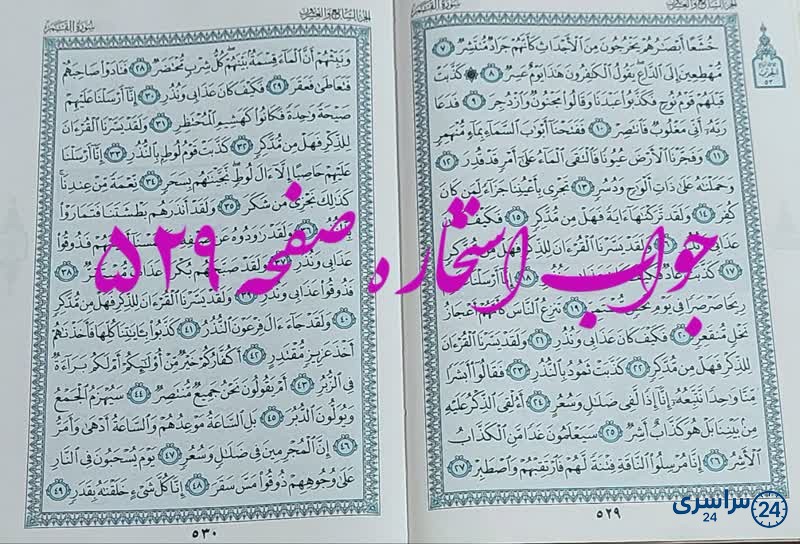 سُورَةُ القَمَرِ
خُشَّعًا أَبْصَٰرُهُمْ يَخْرُجُونَ مِنَ ٱلْأَجْدَاثِ كَأَنَّهُمْ جَرَادٌ مُّنتَشِرٌ ٧
مُّهْطِعِينَ إِلَى ٱلدَّاعِ يَقُولُ ٱلْكَٰفِرُونَ هَٰذَا يَوْمٌ عَسِرٌ ٨ كَذَّبَتْ
قَبْلَهُمْ قَوْمُ نُوحٍ فَكَذَّبُوا۟ عَبْدَنَا وَقَالُوا۟ مَجْنُونٌ وَٱزْدُجِرَ ٩ فَدَعَا
رَبَّهُۥٓ أَنِّى مَغْلُوبٌ فَٱنتَصِرْ ١٠ فَفَتَحْنَآ أَبْوَٰبَ ٱلسَّمَآءِ بِمَآءٍ مُّنْهَمِرٍ
١١ وَفَجَّرْنَا ٱلْأَرْضَ عُيُونًا فَٱلْتَقَى ٱلْمَآءُ عَلَىٰٓ أَمْرٍ قَدْ قُدِرَ ١٢
وَحَمَلْنَٰهُ عَلَىٰ ذَاتِ أَلْوَٰحٍ وَدُسُرٍ ١٣ تَجْرِى بِأَعْيُنِنَا جَزَآءً لِّمَن كَانَ
كُفِرَ ١٤ وَلَقَد تَّرَكْنَٰهَآ ءَايَةً فَهَلْ مِن مُّدَّكِرٍ ١٥ فَكَيْفَ كَانَ
عَذَابِى ١٦ وَلَقَدْ يَسَّرْنَا ٱلْقُرْءَانَ لِلذِّكْرِ فَهَلْ مِن مُّدَّكِرٍ
١٧ كَذَّبَتْ عَادٌ فَكَيْفَ ١٨ إِنَّآ أَرْسَلْنَا
رِيحًا صَرْصَرًا فِى يَوْمِ نَحْسٍ ١٩ تَنزِعُ ٱلنَّاسَ كَأَنَّهُمْ أَعْجَازُ
نَخْلٍ مُّنقَعِرٍ ٢٠ فَكَيْفَ كَانَ عَذَابِى وَنُذُرِ ٢١ وَلَقَدْ يَسَّرْنَا ٱلْقُرْءَانَ
لِلذِّكْرِ فَهَلْ مِن مُّدَّكِرٍ ٢٢ كَذَّبَتْ ثَمُودُ بِٱلنُّذُرِ ٢٣ فَقَالُوٓا۟ أَبَشَرًا
مِّنَّا وَٰحِدًا نَّتَّبِعُهُۥٓ إِنَّآ إِذًا لَّفِى ضَلَٰلٍ وَسُعُرٍ ٢٤ أَءُلْقِىَ ٱلذِّكْرُ عَلَيْهِ
مِنۢ بَيْنِنَا بَلْ هُوَ كَذَّابٌ أَشِرٌ ٢٥ سَيَعْلَمُونَ غَدًا مَّنِ ٱلْكَذَّابُ
ٱلْأَشِرُ ٢٦ إِنَّا مُرْسِلُوا۟ ٱلنَّاقَةِ فِتْنَةً لَّهُمْ فَٱرْتَقِبْهُمْ وَٱصْطَبِرْ ٢٧
٥٢٩
سُورَةُ القَمَرِ
الجزء السابع والعشرون
وَنَبِّئْهُمْ أَنَّ ٱلْمَآءَ قِسْمَةٌۢ بَيْنَهُمْ كُلُّ شِرْبٍ مُّحْتَضَرٌ ٢٨ فَنَادَوْا۟ صَاحِبَهُمْ
فَتَعَاطَىٰ فَعَقَرَ ٢٩ فَكَيْفَ كَانَ عَذَابِى وَنُذُرِ ٣٠ إِنَّآ أَرْسَلْنَا عَلَيْهِمْ
صَيْحَةً وَٰحِدَةً فَكَانُوا۟ كَهَشِيمِ ٱلْمُحْتَظِرِ ٣١ وَلَقَدْ يَسَّرْنَا ٱلْقُرْءَانَ
لِلذِّكْرِ فَهَلْ مِن مُّدَّكِرٍ ٣٢ كَذَّبَتْ قَوْمُ لُوطٍۭ بِٱلنُّذُرِ ٣٣ إِنَّآ أَرْسَلْنَا
عَلَيْهِمْ حَاصِبًا إِلَّآ ءَالَ لُوطٍ نَّجَّيْنَٰهُم بِسَحَرٍ ٣٤ نِّعْمَةً مِّنْ عِندِنَا
كَذَٰلِكَ نَجْزِى مَن شَكَرَ ٣٥ وَلَقَدْ أَنذَرَهُم بَطْشَتَنَا فَتَمَارَوْا۟
بِٱلنُّذُرِ ٣٦ وَلَقَدْ رَٰوَدُوهُ عَن ضَيْفِهِۦ فَطَمَسْنَآ أَعْيُنَهُمْ فَذُوقُوا۟
عَذَابِى وَنُذُرِ ٣٧ وَلَقَدْ صَبَّحَهُم بُكْرَةً عَذَابٌ ٣٨
فَذُوقُوا۟ عَذَابِى وَنُذُرِ ٣٩ وَلَقَدْ يَسَّرْنَا ٱلْقُرْءَانَ لِلذِّكْرِ فَهَلْ مِن مُّدَّكِرٍ
٤٠ وَلَقَدْ جَآءَ ءَالَ فِرْعَوْنَ ٱلنُّذُرُ ٤١ كَذَّبُوا۟ بِـَٔايَٰتِنَا كُلِّهَا فَأَخَذْنَٰهُمْ
أَخْذَ عَزِيزٍ مُّقْتَدِرٍ ٤٢ أَكُفَّارُكُمْ خَيْرٌ مِّنْ أُو۟لَٰٓئِكُمْ أَمْ لَكُم بَرَآءَةٌ
فِى ٱلزُّبُرِ ٤٣ أَمْ يَقُولُونَ نَحْنُ جَمِيعٌ مُّنتَصِرٌ ٤٤ سَيُهْزَمُ ٱلْجَمْعُ
وَيُوَلُّونَ ٱلدُّبُرَ ٤٥ بَلِ ٱلسَّاعَةُ مَوْعِدُهُمْ وَٱلسَّاعَةُ أَدْهَىٰ وَأَمَرُّ
٤٦ إِنَّ ٱلْمُجْرِمِينَ فِى ضَلَٰلٍ وَسُعُرٍ ٤٧ يَوْمَ يُسْحَبُونَ فِى ٱلنَّارِ
عَلَىٰ وُجُوهِهِمْ ذُوقُوا۟ مَسَّ سَقَرَ ٤٨ إِنَّا كُلَّ شَىْءٍ خَلَقْنَٰهُ بِقَدَرٍ ٤٩
٥٣٠
جواب استخاره صفحه ۵۲۹
سراسری
24
24